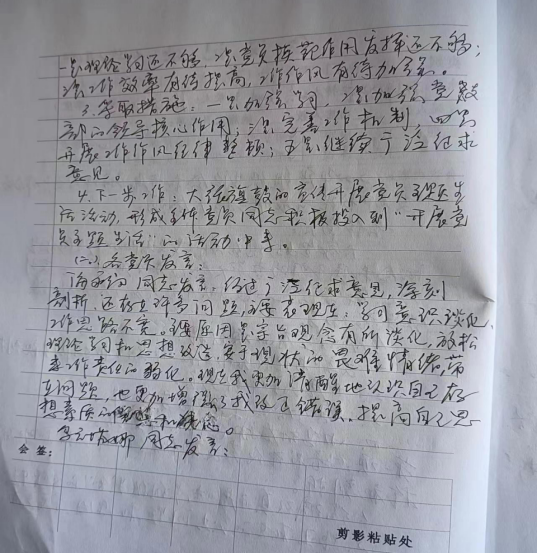 一是理论学习还不够，二是党员模范作用发挥还不够；
三是工作效率有待提高，工作作风有待加强。
3.采取措施：一是加强学习，二是加强党支
部的领导核心作用；三是完善工作机制，四是
开展工作作风纪律整顿；五是继续广泛征求
意见。
4.下一步工作：大张旗鼓的宣传开展党员主题生
活活动，形成全体党员同志积极投入到“开展党
员主题生活”的活动中来。
(二)、各党员发言：
同志发言，经过广泛征求意见，深刻
剖析，还存在许多问题，主要表现在：学习意识淡化，
工作思路不宽。主要原因是宗旨观念有所淡化，放松
理论学习和思想改造，安于现状的畏难情绪，带
来工作责任的弱化。现在我更加清醒地认识自己存
在问题，也更加增强了我改正错误，提高自己思
想素质的和信心。
李 娜同志发言：
会签：
剪影粘贴处